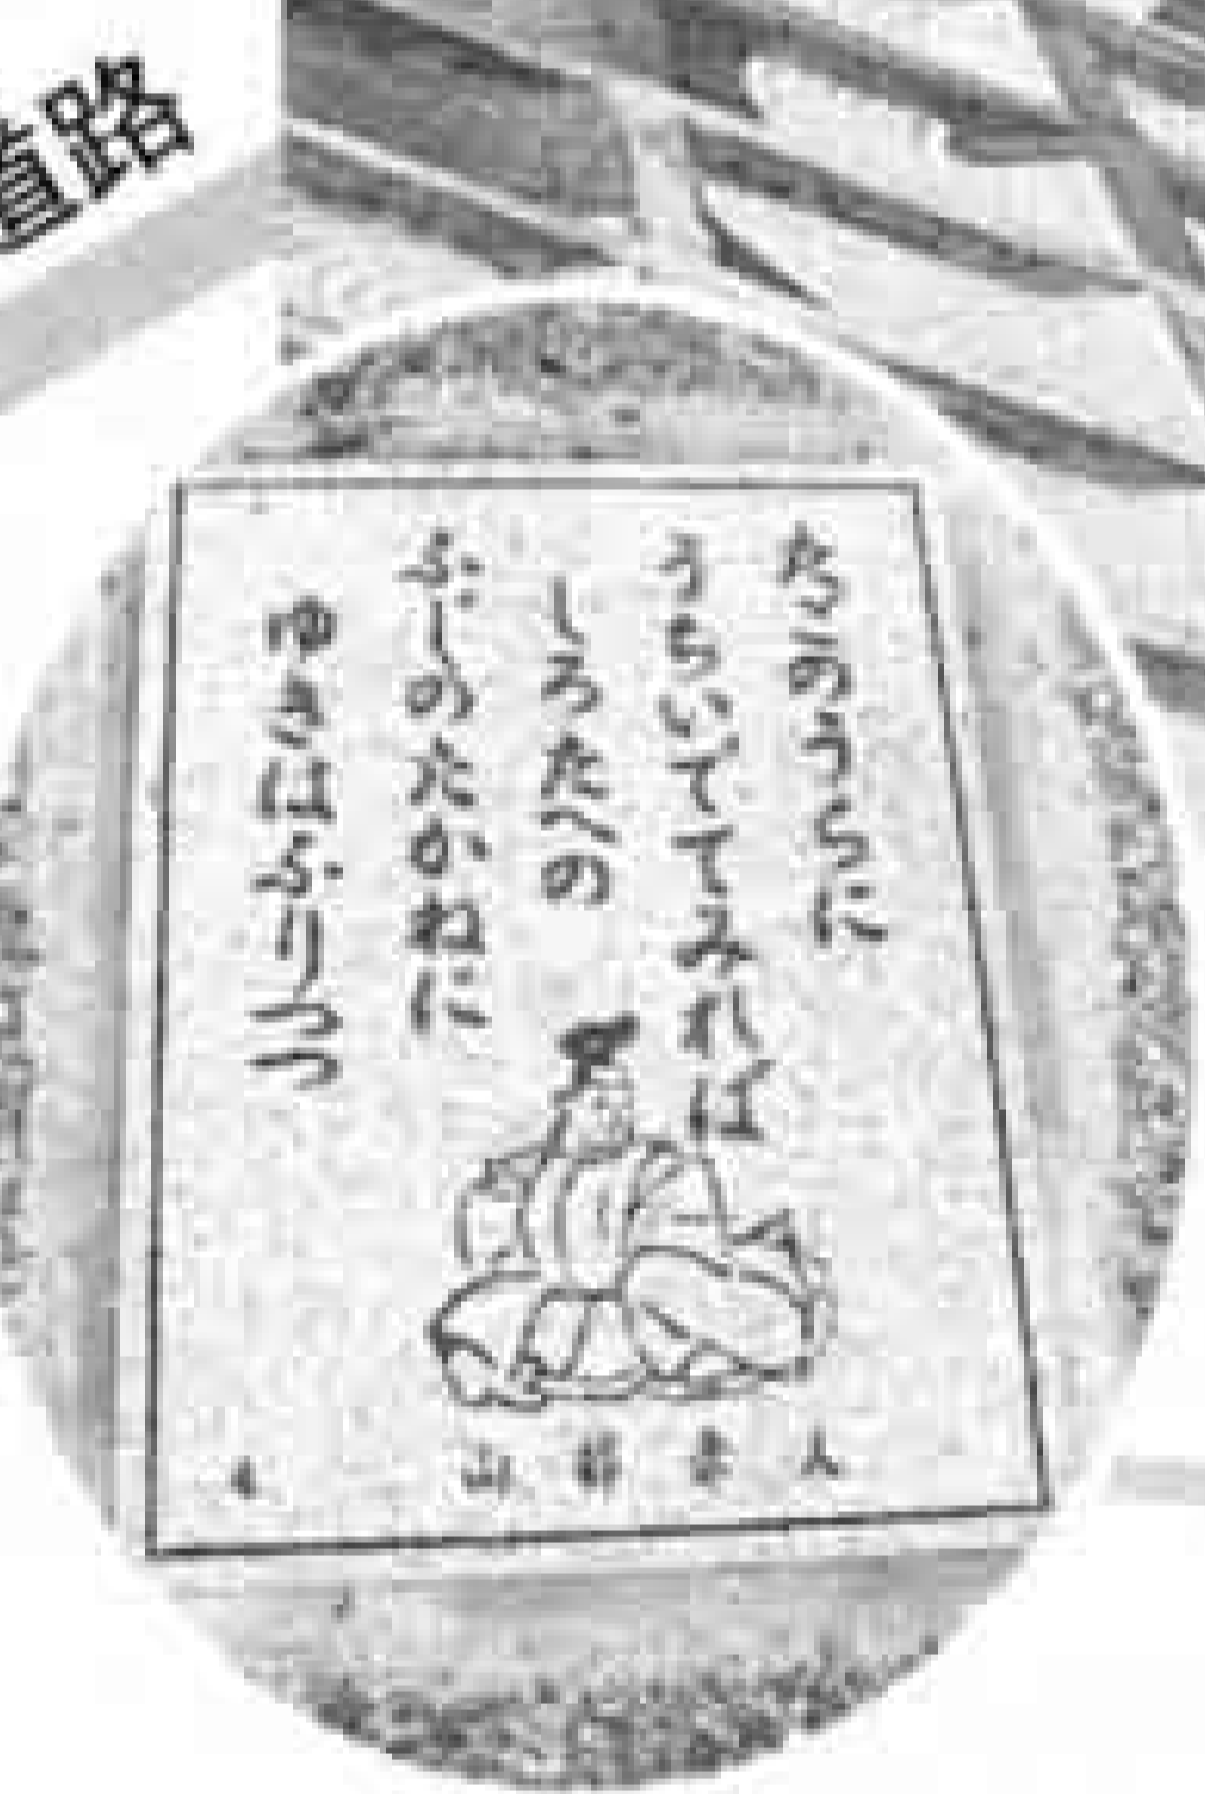 道路
たごのうらに
うちいでてみれば
しろたへの
ふじのたかねに
ゆきはふりつつ
山部赤人